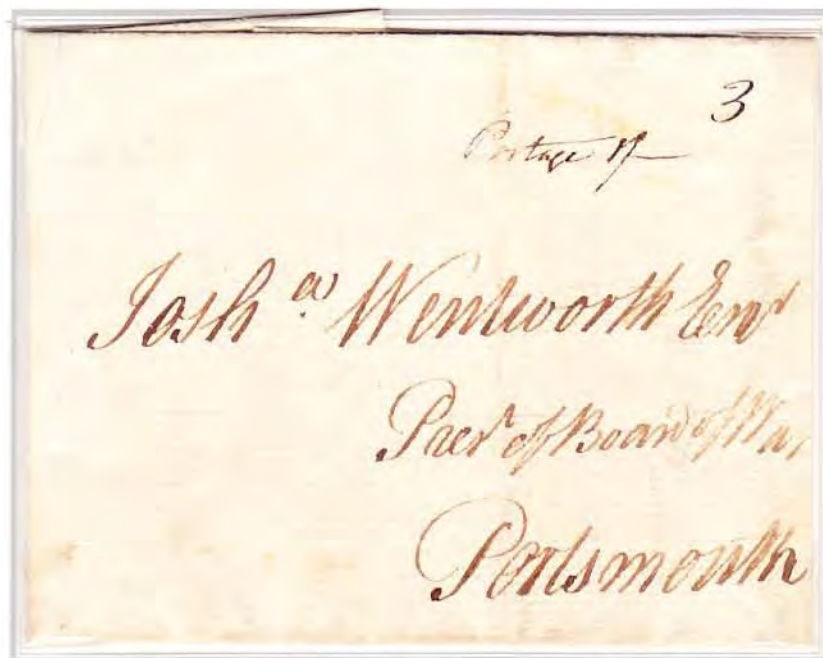 3
Postage 1/
Josh.a Wentworth Esqr
Presᵗ of Board of War
Portsmouth